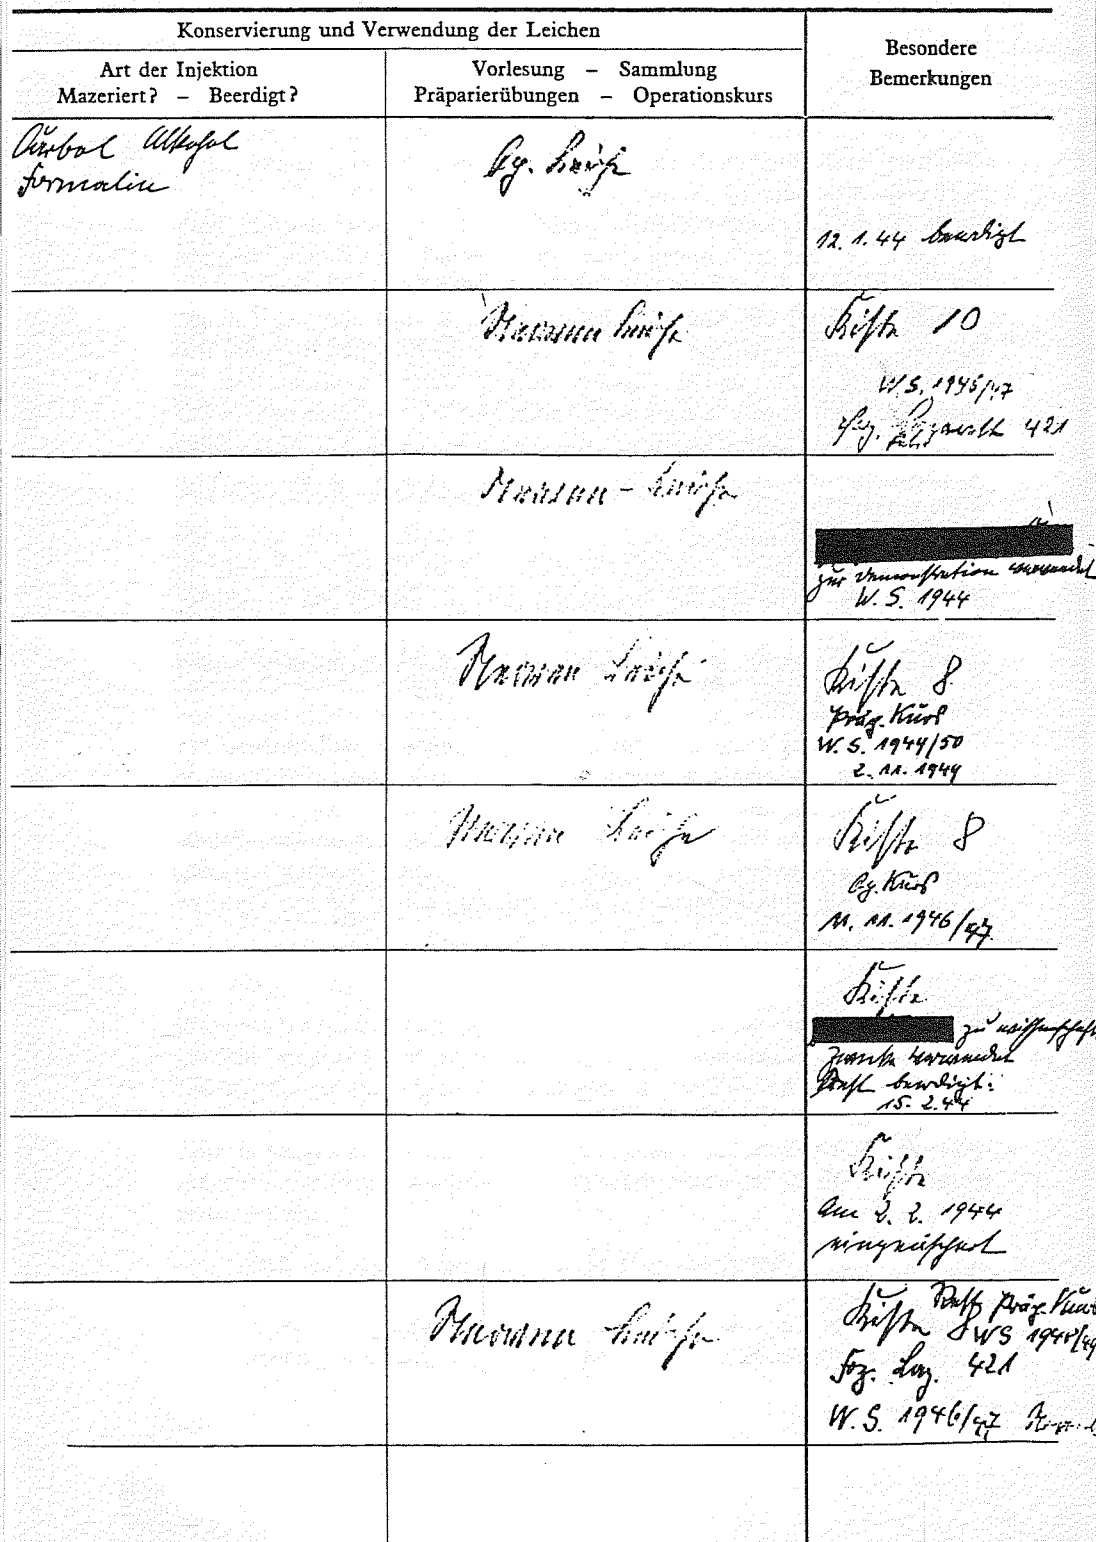 Konservierung und Verwendung der Leichen
Besondere
Bemerkungen
Art der Injektion
Mazeriert? – Beerdigt?
Vorlesung – Sammlung
Präparierübungen – Operationskurs
Carbol Alkohol
Formalin
Op. Leiche
12. 1. 44 beerdigt
Nerven Leiche
Kiste 10
W.S. 1946/47
421
Nerven-Leiche
zur Demonstration verwendet
W. S. 1944
Nerven Leiche
Kiste 8
Präp. Kurs
W. S. 1949/50
2. 11. 1949
Nerven Leiche
Kiste 8
Op. Kurs
11. 11. 1946/47
Kiste
zu wissenschaft
Zwecke verwendet
Rest beerdigt:
15. 2. 44
Kiste
Am 2. 2. 1944
eingeäschert
Nerven Leiche
Kiste 8
Rest Präp. Kurs
WS 1948/49
Laz. 421
W. S. 1946/47